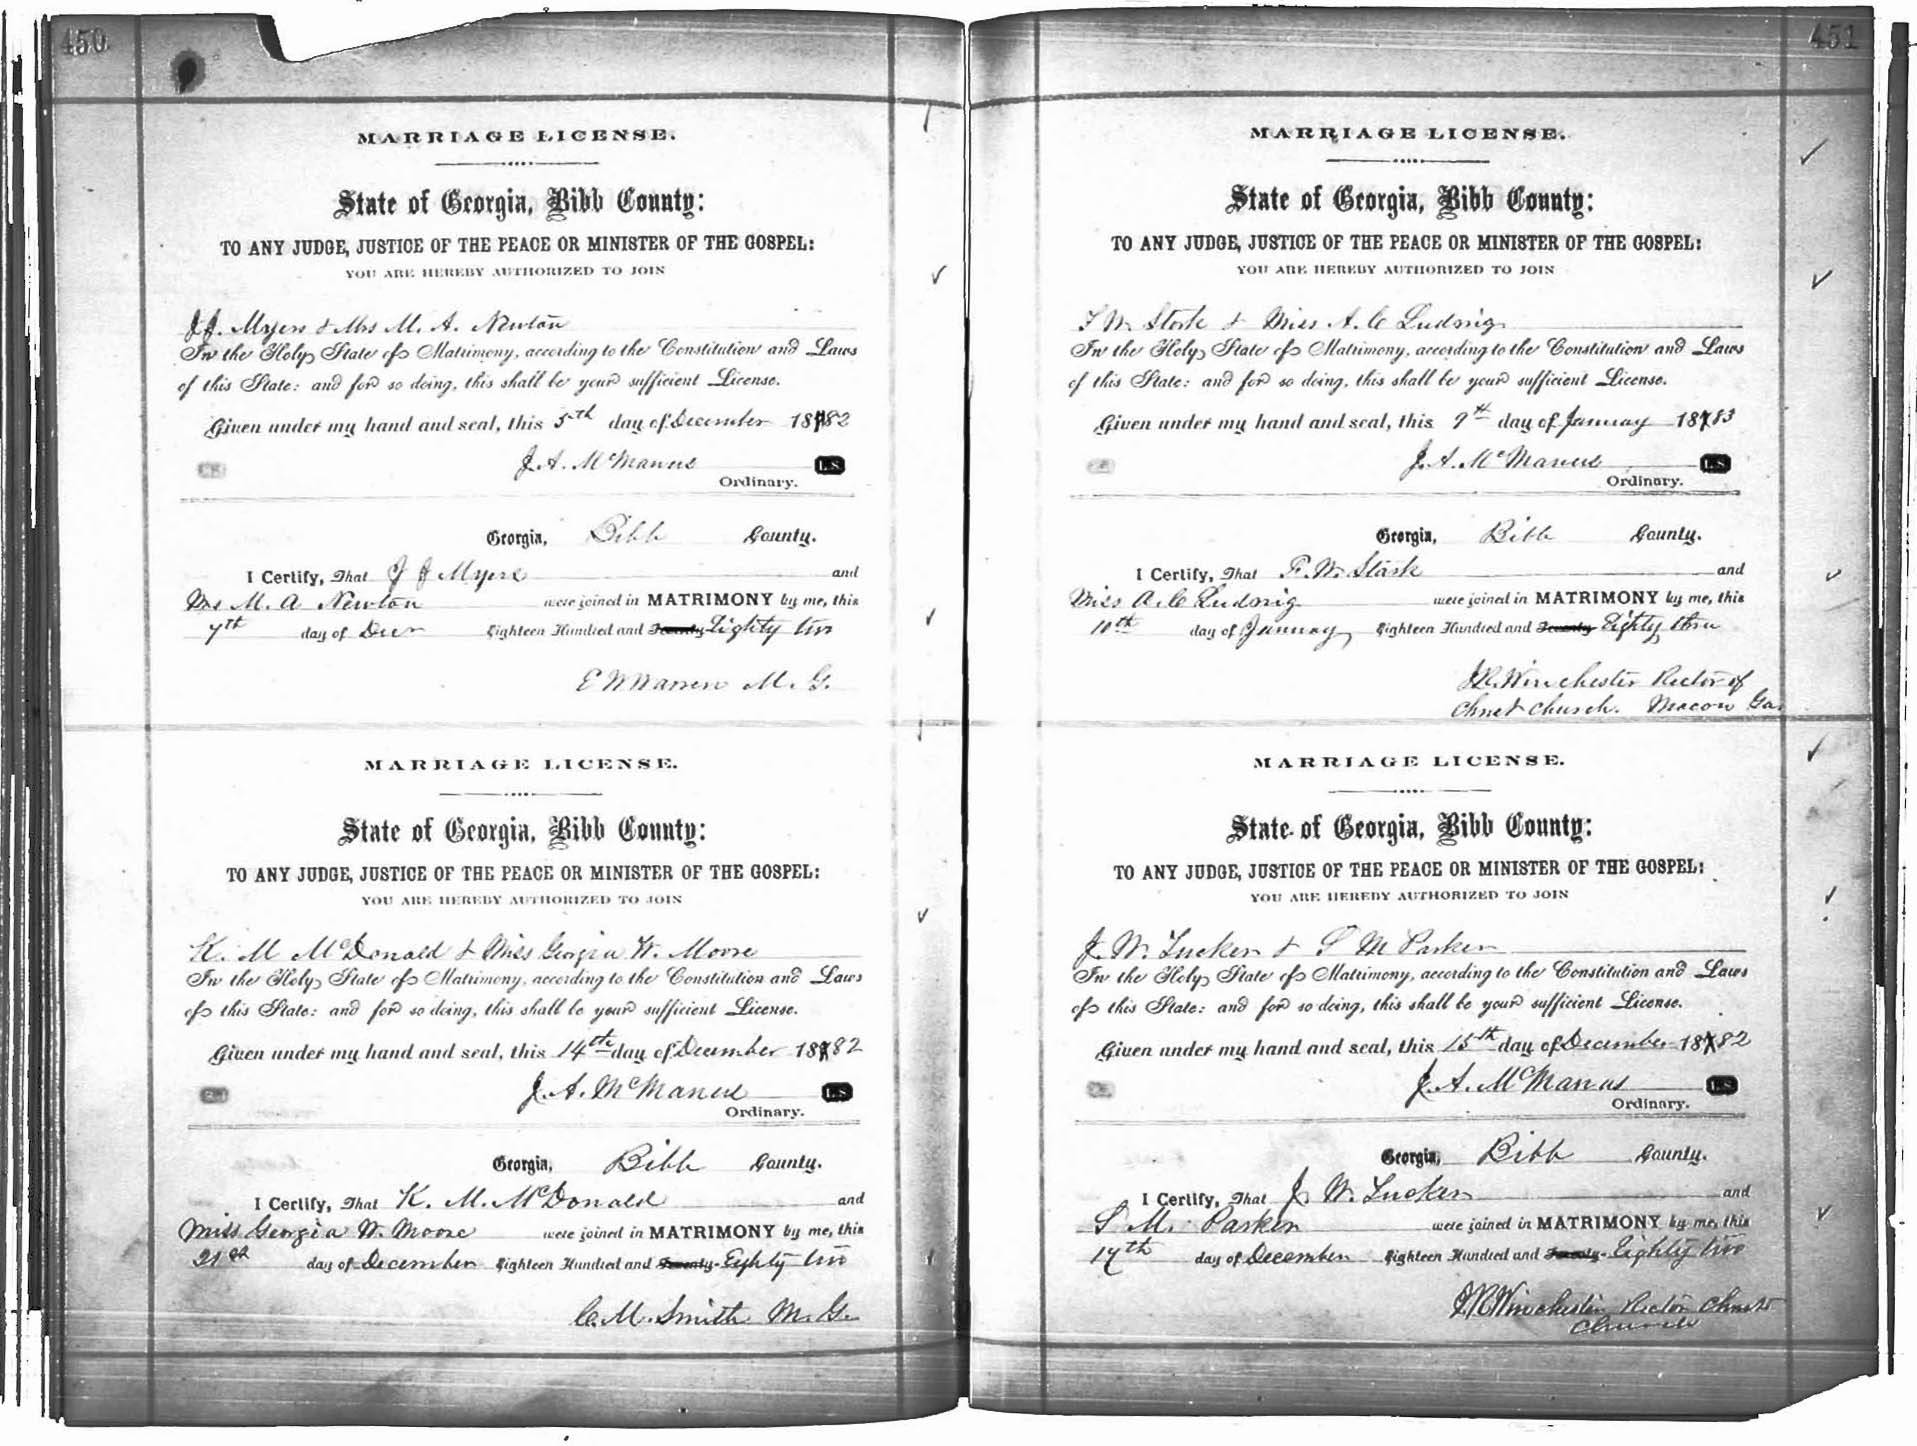 450
MARRIAGE LICENSE.
State of Georgia, Bibb County:
TO ANY JUDGE, JUSTICE OF THE PEACE OR MINISTER OF THE GOSPEL:
YOU ARE HEREBY AUTHORIZED TO JOIN
J J. Myers & Mrs M. A. Newton
In the Holy State of Matrimony, according to the Constitution and Laws
of this State: and for so doing, this shall be your sufficient License.
Given under my hand and seal, this 5th day of December 1882
J. A. McManus L.S.
Ordinary.
Georgia, Bibb County.
I Certify, That J J Myers and
Mrs M. A Newton were joined in MATRIMONY by me, this
7th day of Decr Eighteen Hundred and Seventy Eighty two
E W Warren M. G.
MARRIAGE LICENSE.
State of Georgia, Bibb County:
TO ANY JUDGE, JUSTICE OF THE PEACE OR MINISTER OF THE GOSPEL:
YOU ARE HEREBY AUTHORIZED TO JOIN
K. M McDonald & Miss Georgia W. Moore
In the Holy State of Matrimony, according to the Constitution and Laws
of this State: and for so doing, this shall be your sufficient License.
Given under my hand and seal, this 14th day of December 1882
J. A. McManus L.S.
Ordinary.
Georgia, Bibb County.
I Certify, That K. M. McDonald and
Miss Georgia W. Moore were joined in MATRIMONY by me, this
21st day of December Eighteen Hundred and Seventy Eighty two
C. M. Smith M. G.
451
MARRIAGE LICENSE.
State of Georgia, Bibb County:
TO ANY JUDGE, JUSTICE OF THE PEACE OR MINISTER OF THE GOSPEL:
YOU ARE HEREBY AUTHORIZED TO JOIN
F W Stark & Miss A. C Ludwig
In the Holy State of Matrimony, according to the Constitution and Laws
of this State: and for so doing, this shall be your sufficient License.
Given under my hand and seal, this 9th day of January 1883
J. A. McManus L.S.
Ordinary.
Georgia, Bibb County.
I Certify, That F. W. Stark and
Miss A. C Ludwig were joined in MATRIMONY by me, this
10th day of January, Eighteen Hundred and Seventy Eighty three
J R Winchester Rector of
Christ Church. Macon Ga.
MARRIAGE LICENSE.
State of Georgia, Bibb County:
TO ANY JUDGE, JUSTICE OF THE PEACE OR MINISTER OF THE GOSPEL:
YOU ARE HEREBY AUTHORIZED TO JOIN
J. W. Tucker & S M Parker
In the Holy State of Matrimony, according to the Constitution and Laws
of this State: and for so doing, this shall be your sufficient License.
Given under my hand and seal, this 15th day of December 1882
J. A. McManus L.S.
Ordinary.
Georgia, Bibb County.
I Certify, That J. W. Tucker and
S M. Parker were joined in MATRIMONY by me, this
17th day of December Eighteen Hundred and Seventy Eighty two
J R Winchester Rector Christ
Church